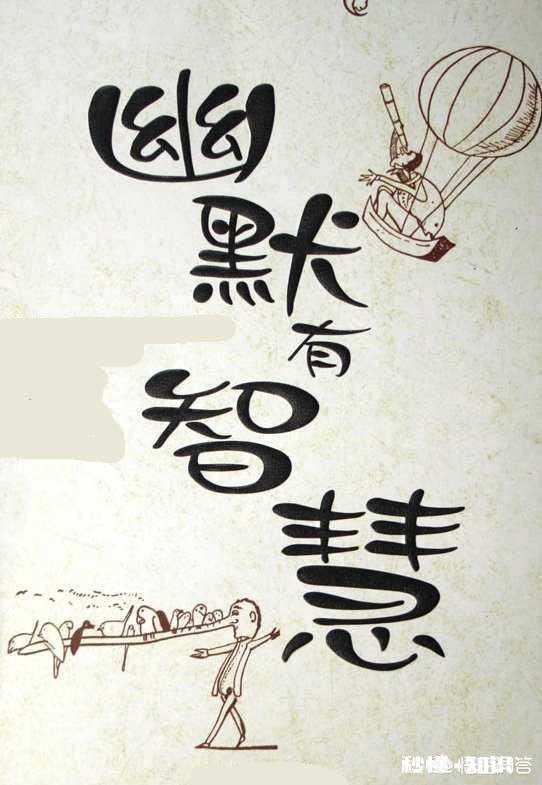 幽默有智慧
秒懂·知识